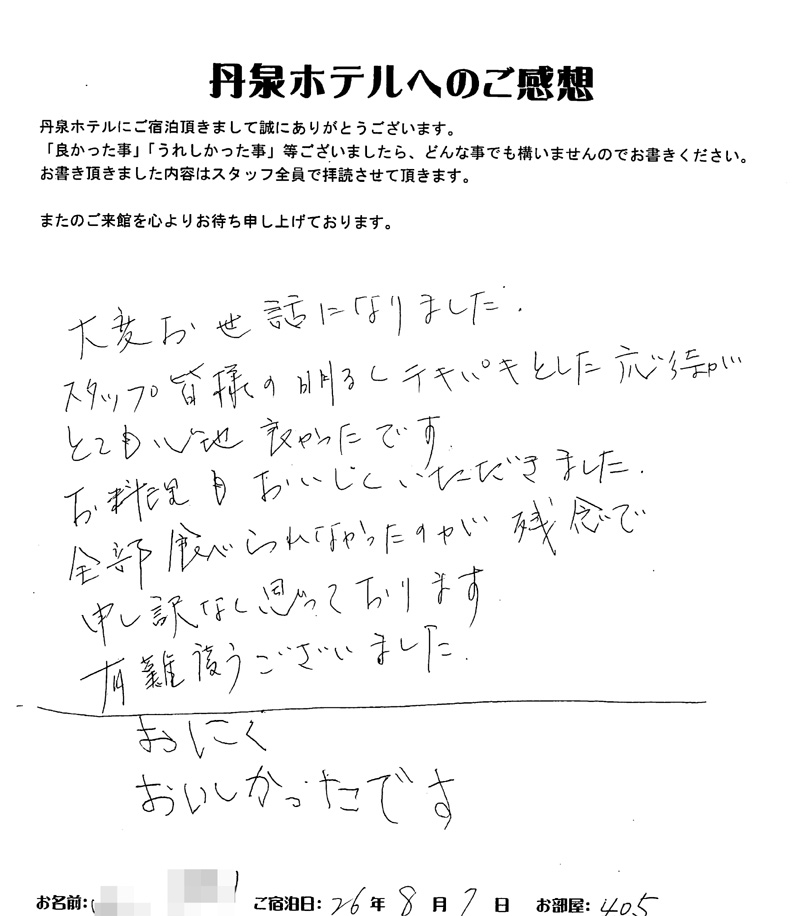 丹泉ホテルへのご感想
丹泉ホテルにご宿泊頂きまして誠にありがとうございます。
「良かった事」「うれしかった事」等ございましたら、どんな事でも構いませんのでお書きください。
お書き頂きました内容はスタッフ全員で拝読させて頂きます。
またのご来館を心よりお待ち申し上げております。
大変お世話になりました.
スタッフ皆様の明るくテキパキとした応待が
とても心地良かったです.
お料理もおいしくいただきました.
全部食べられなかったのが残念で
申し訳なく思っております
有難うございました.
おにく
おいしかったです
お名前: ご宿泊日: 26年8月7日 お部屋: 405